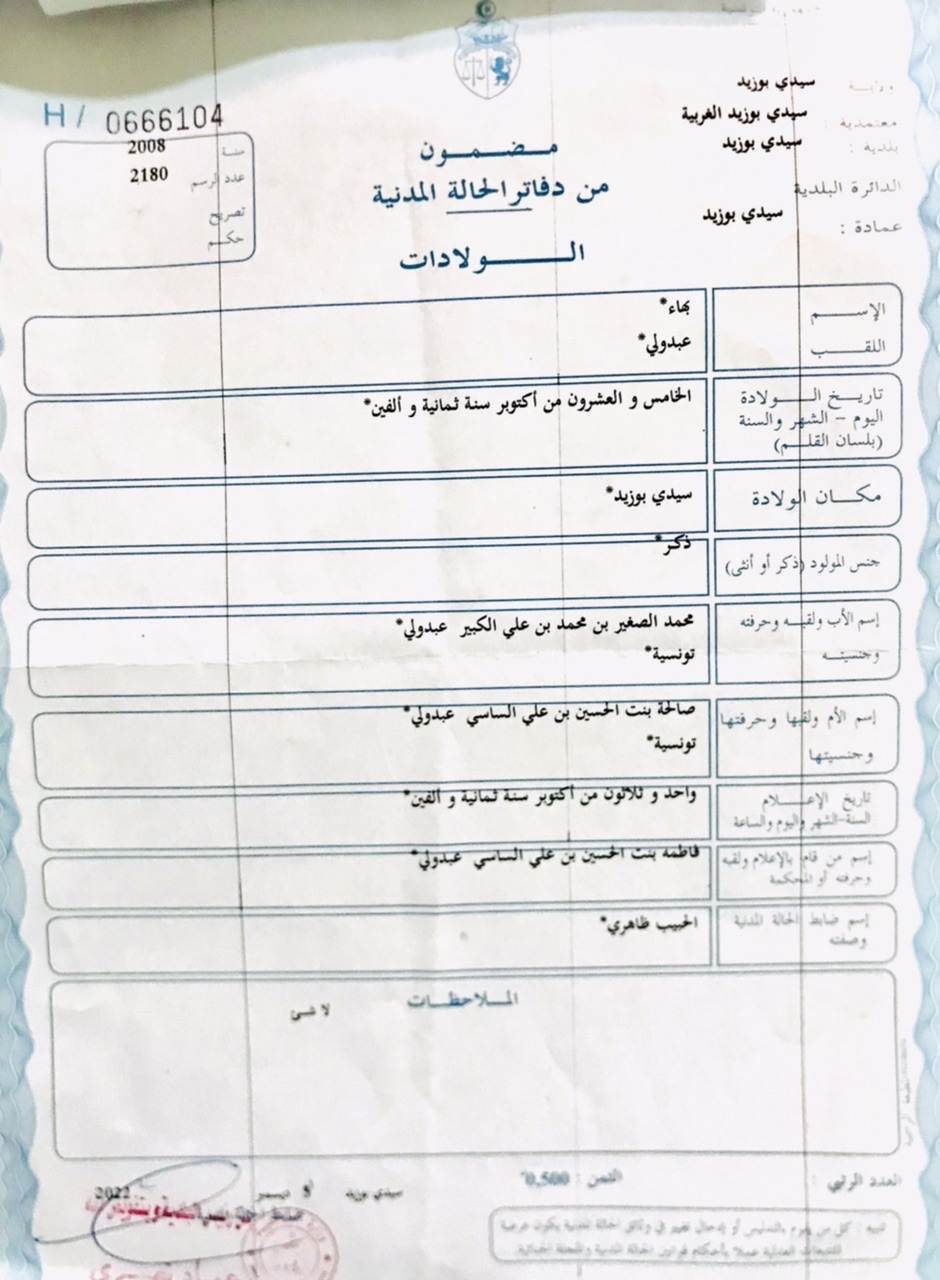 ولاية : سيدي بوزيد
معتمدية : سيدي بوزيد الغربية
بلدية : سيدي بوزيد
الدائرة البلدية
عمادة : سيدي بوزيد
H / 0666104
سنة 2008
عدد الرسم 2180
تصريح
حكم
مضمون
من دفاتر الحالة المدنية
الولادات
الإسم بهاء*
اللقب عبدولي*
تاريخ الولادة
اليوم - الشهر والسنة
(بلسان القلم)
الخامس و العشرون من أكتوبر سنة ثمانية و ألفين*
مكان الولادة سيدي بوزيد*
جنس المولود (ذكر أو أنثى) ذكر*
إسم الأب ولقبه وحرفته محمد الصغير بن محمد بن علي الكبير عبدولي*
وجنسيته تونسية*
إسم الأم ولقبها وحرفتها صالحة بنت الحسين بن علي الساسي عبدولي*
وجنسيتها تونسية*
تاريخ الإعلام
السنة-الشهر واليوم والساعة
واحد و ثلاثون من أكتوبر سنة ثمانية و ألفين*
إسم من قام بالإعلام ولقبه
وحرفته أو المحكمة
فاطمه بنت الحسين بن علي الساسي عبدولي*
إسم ضابط الحالة المدنية
وصفته
الحبيب ظاهري*
الملاحظات
لا شئ
العدد الرتبي :
الثمن : 0,500
سيدي بوزيد 5 ديسمبر 2022
تنبيه : كل من يقوم بالتدليس أو بإدخال تغيير في وثائق الحالة المدنية يكون عرضة
للتتبعات العدلية عملا بأحكام قوانين الحالة المدنية والمجلة الجنائية.